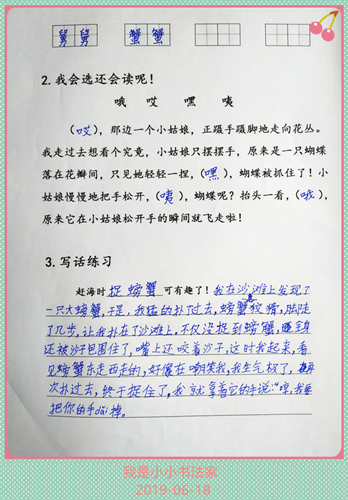 舅舅 蟹蟹
2.我会选还会读呢！
哦 哎 嘿 咦
（哎），那边一个小姑娘，正蹑手蹑脚地走向花丛。
我走过去想看个究竟，小姑娘只摆摆手，原来是一只蝴蝶
落在花瓣间，只见她轻轻一捏，（嘿），蝴蝶被抓住了！小
姑娘慢慢地把手松开，（咦），蝴蝶呢？抬头一看，（哦），
原来它在小姑娘松开手的瞬间就飞走啦！
3.写话练习
赶海时捉螃蟹可有趣了！我在沙滩上发现了
一只大螃蟹，于是，我猛的扑了过去，螃蟹很狡猾，
了几步，让我扑在了沙滩上，不仅没捉到螃蟹，
还被沙子包围住了，嘴上还咬着沙子，这时我起来，看
见螃蟹东走西走的，好像在嘲笑我，我生气极了，再
次扑过去，终于捉住了，我就拿着它的手说："哼，我要
把你的手dǎi掉。
我是小小书法家
2019-06-18